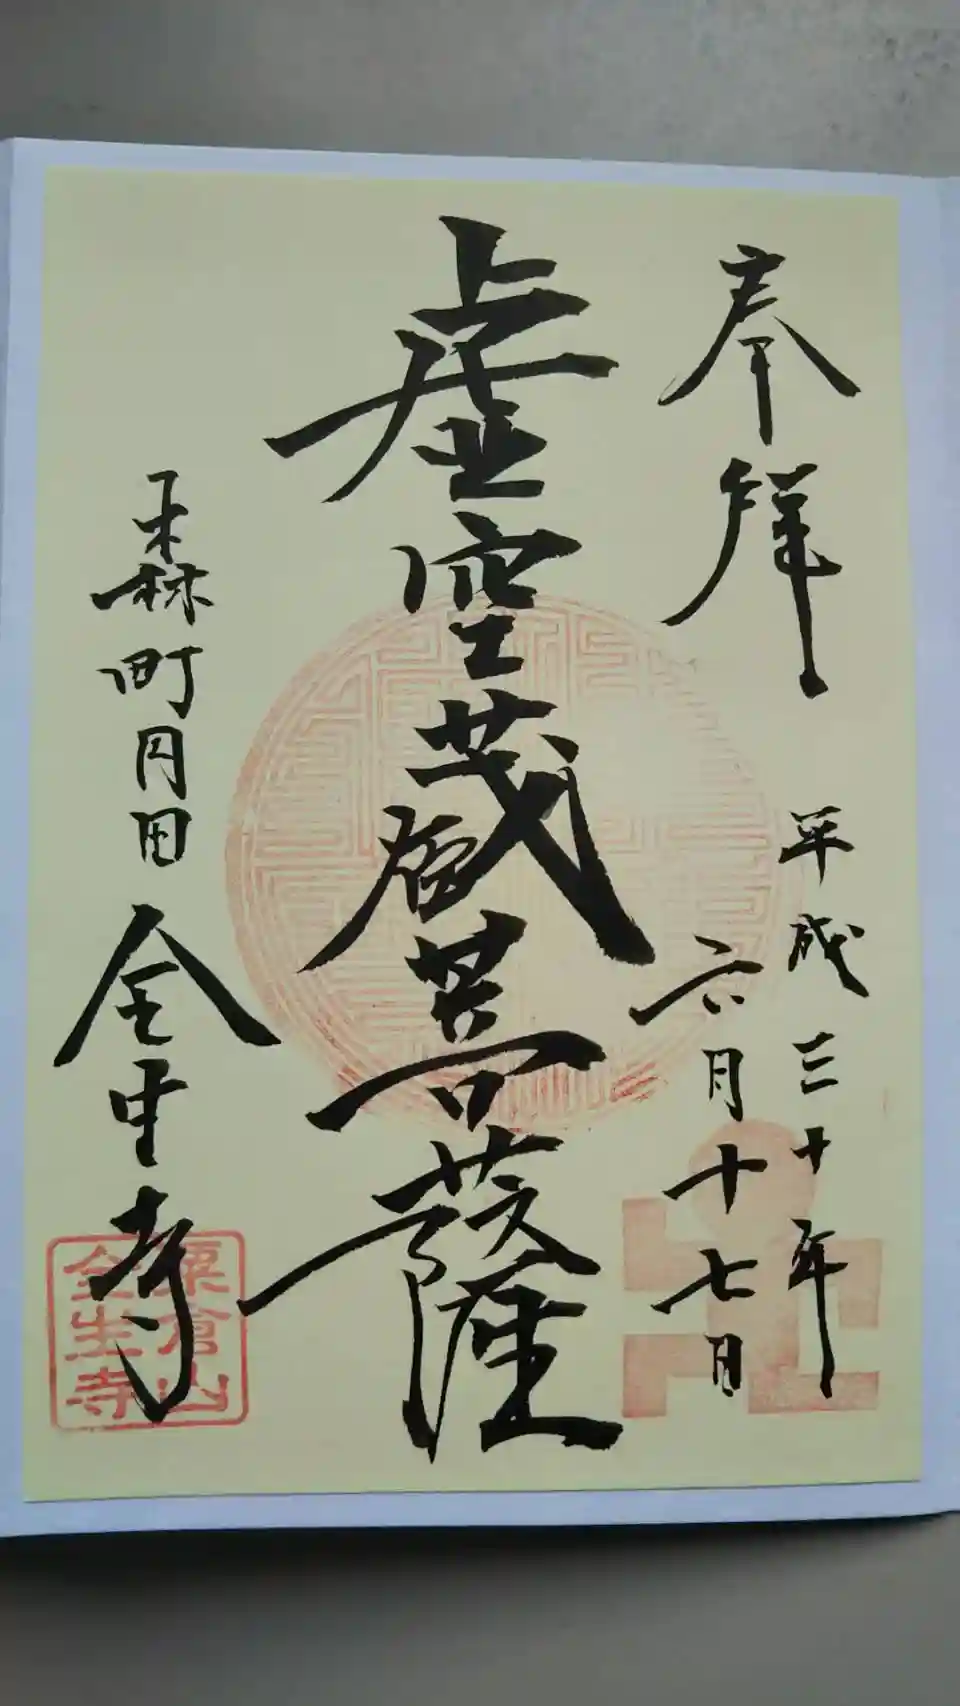 奉拝
平成三十年
六月十七日
虚空蔵菩薩
森町円田 全生寺
粟倉山
全生寺